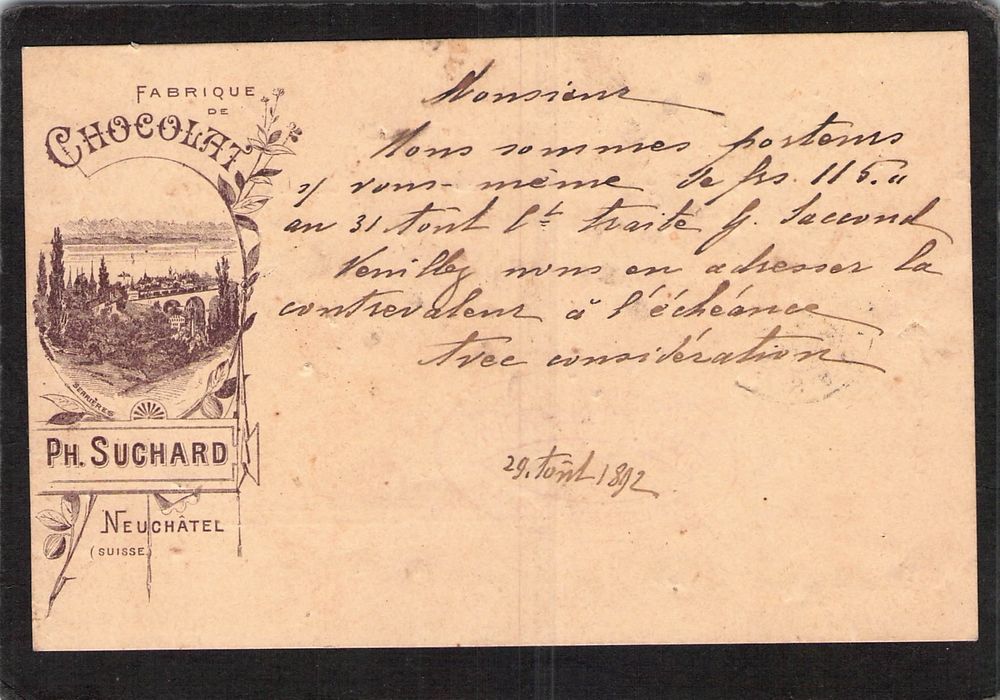 FABRIQUE
DE
CHOCOLAT
SERRIÈRES
PH. SUCHARD
NEUCHÂTEL
(SUISSE)
Monsieur
Nous sommes porteurs
s/ vous-même de frs. 115.„
au 31 Août Ct traite
Veuillez nous en adresser la
contrevaleur à l'échéance
Avec considération
29. Août 1892